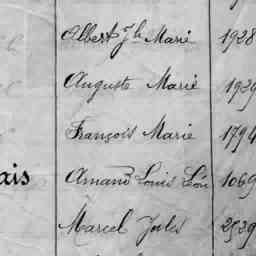 Albert Jh Marie 1928
Auguste Marie 1939
François Marie 1794
ais Amand Louis Léon 1069
Marcel Jules 2539